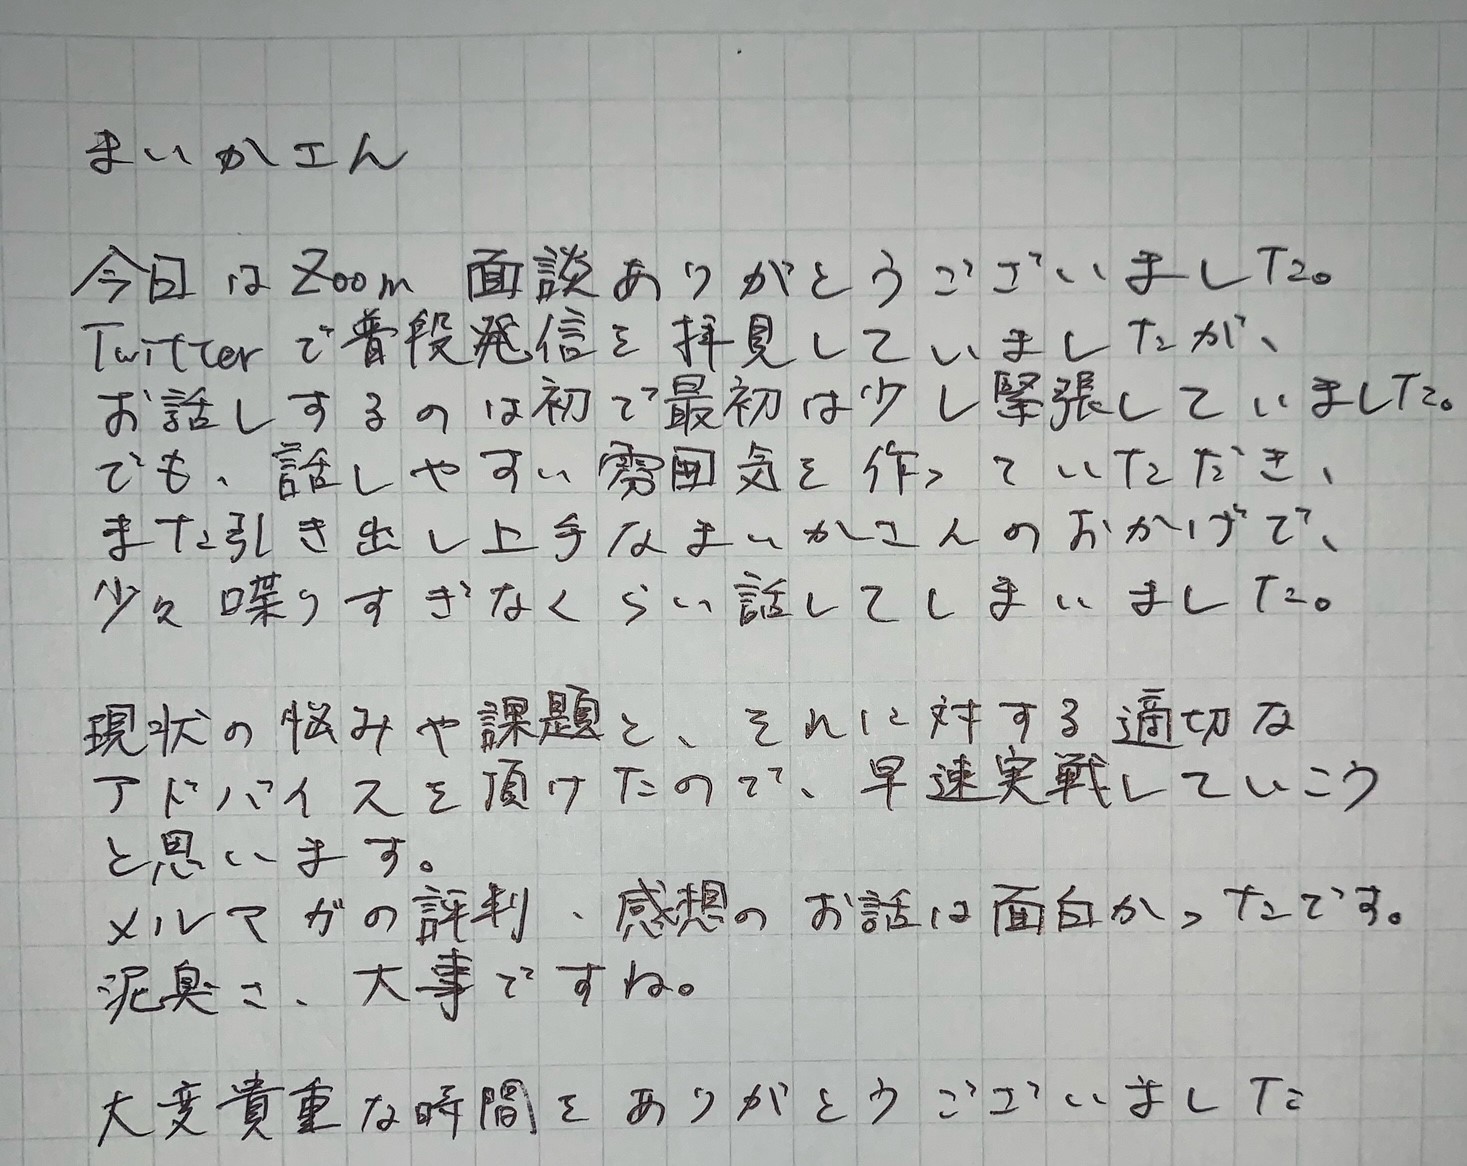 まいかさん
今日はZoom 面談ありがとうございました。
Twitterで普段発信を拝見していましたが、
お話しするのは初で最初は少し緊張していました。
でも、話しやすい雰囲気を作っていただき、
また引き出し上手なまいかさんのおかげで、
少々喋りすぎなくらい話してしまいました。
現状の悩みや課題と、それに対する適切な
アドバイスを頂けたので、早速実戦していこう
と思います。
メルマガの評判、感想のお話は面白かったです。
泥臭さ、大事ですね。
大変貴重な時間をありがとうございました